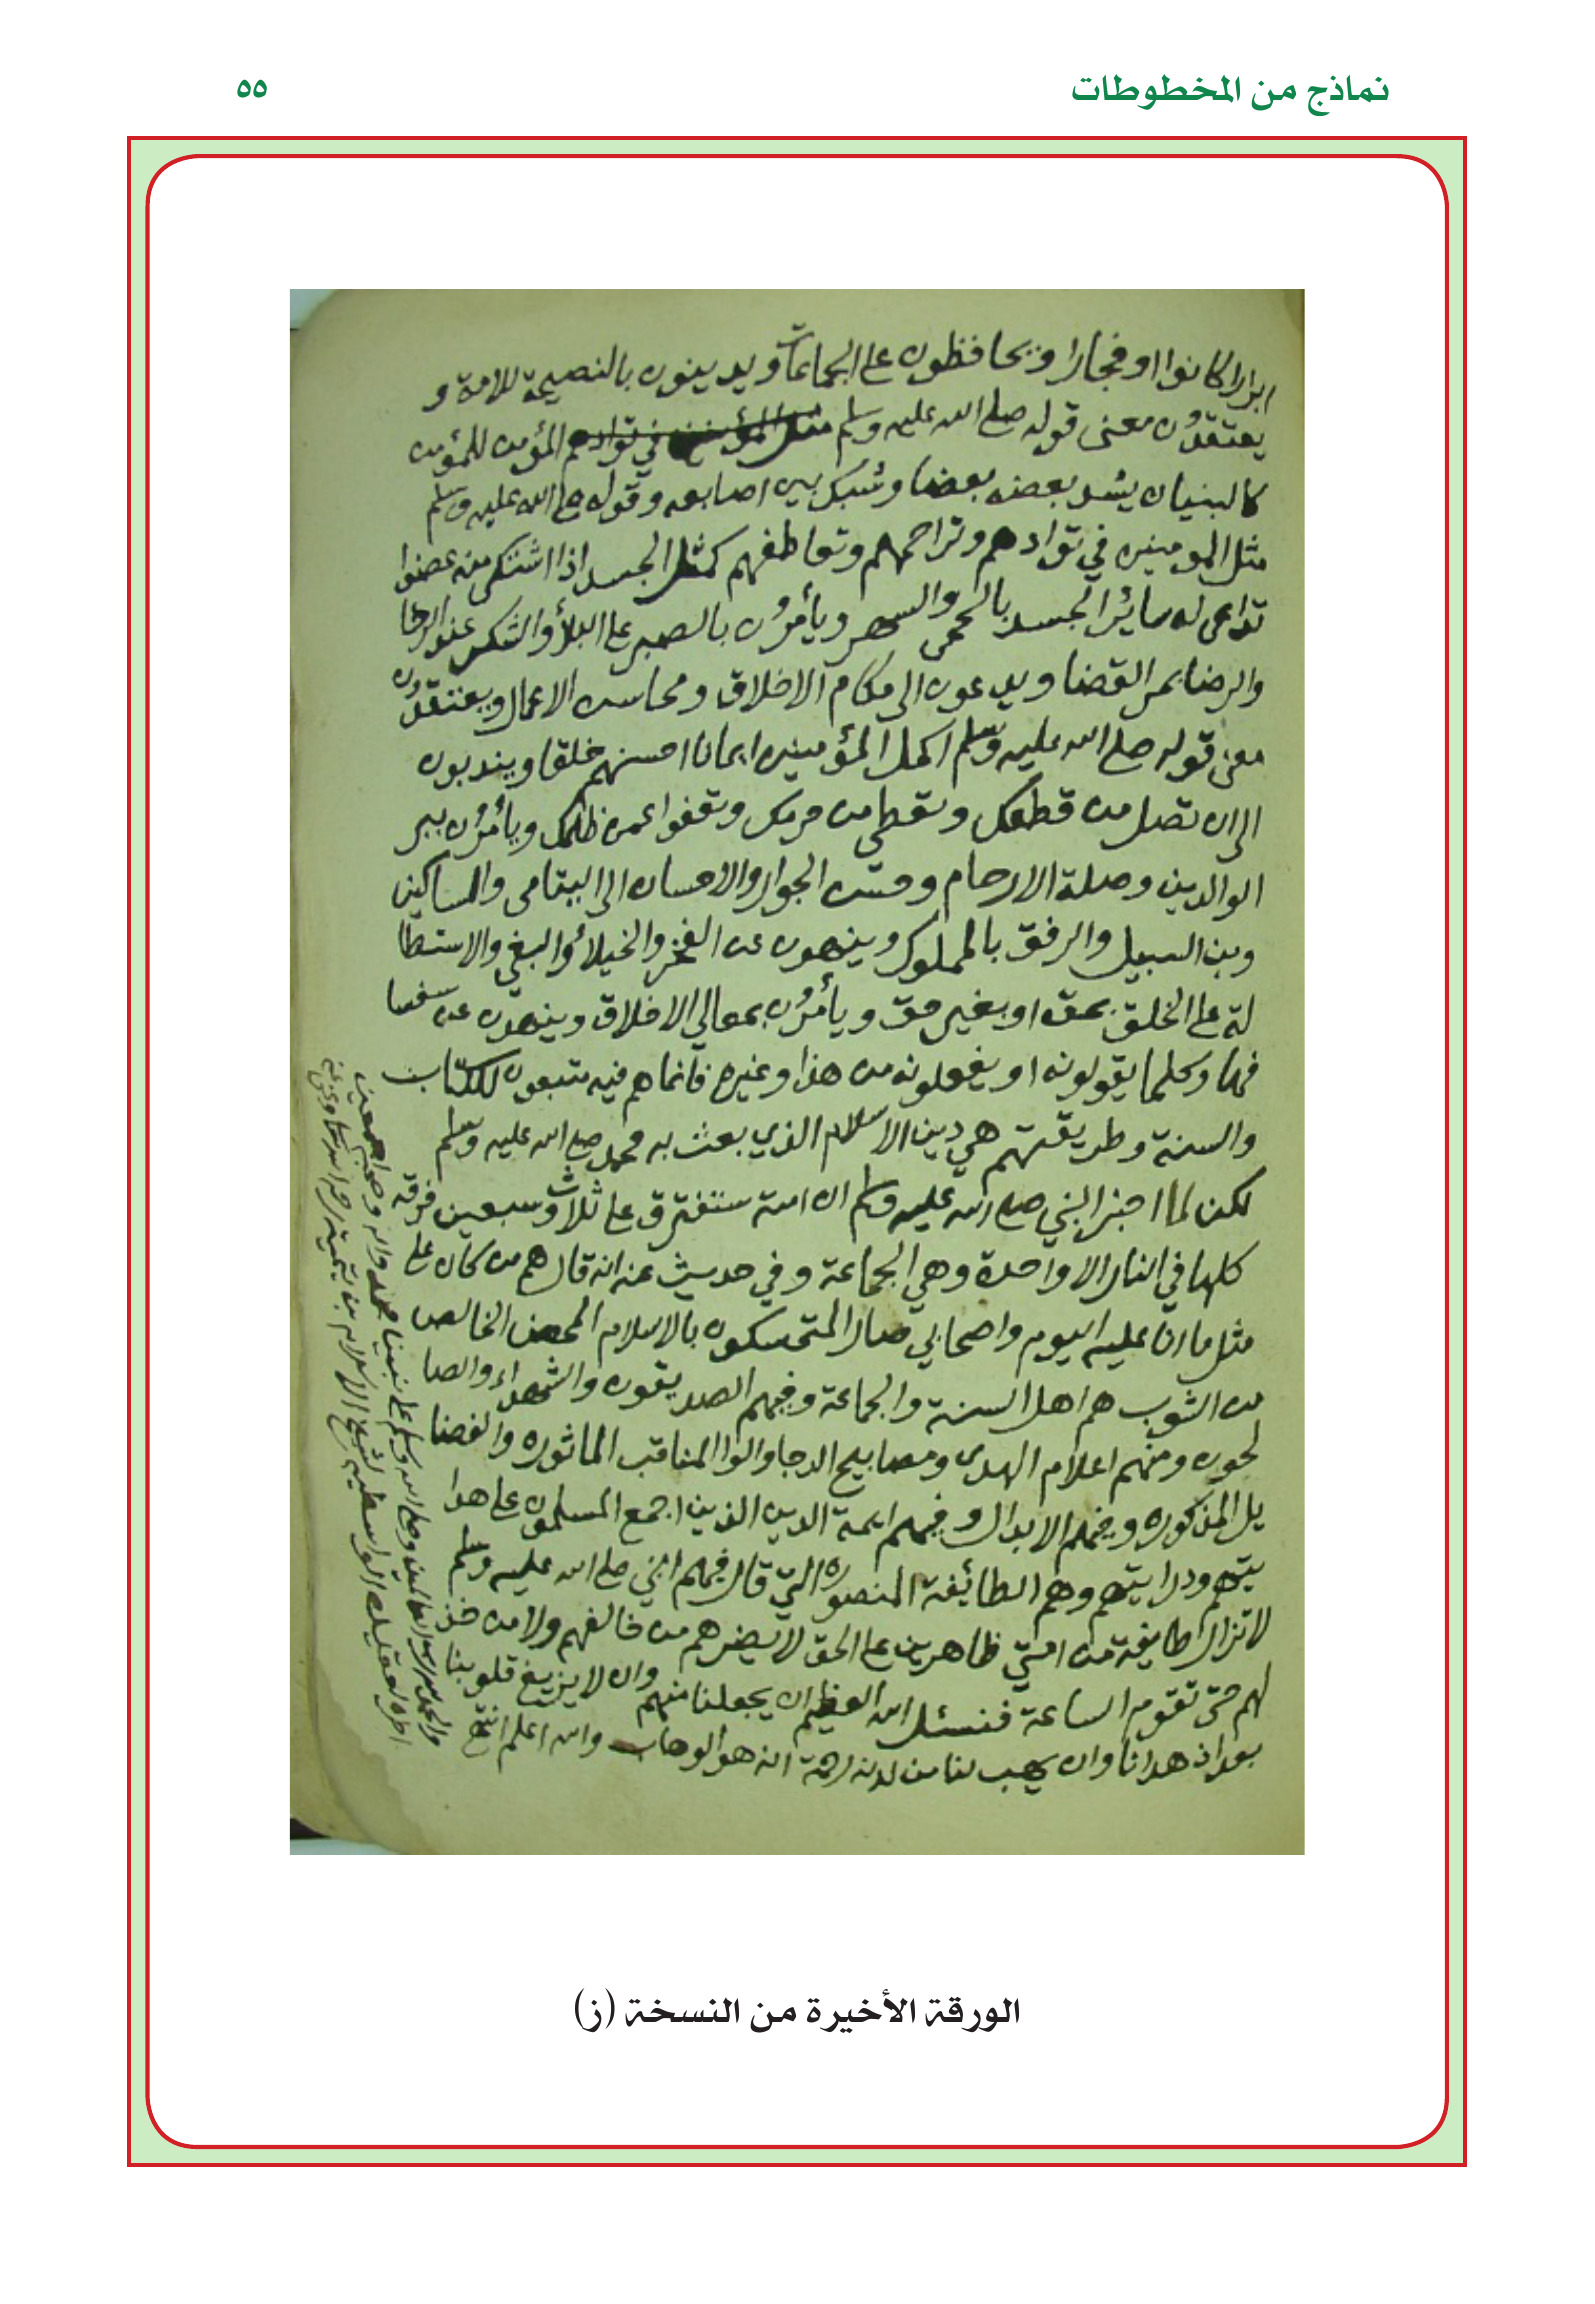 نماذج من المخطوطات ٥٥
ابرارا كانوا او فجارا ويحافظون على الجماعات ويدينون بالنصيحة للامة و
يعتقدون معنى قوله صلى الله عليه وسلم مثل المؤمنين في توادهم المؤمن للمؤمن
كالبنيان يشد بعضه بعضا وشبك بين اصابعه وقوله صلى الله عليه وسلم
مثل المومنين في توادهم وتراحمهم وتعاطفهم كمثل الجسد اذا اشتكى منه عضوا
تداعى له سائر الجسد بالحمى والسهر ويأمرون بالصبر على البلاء والشكر عند الرخا
والرضا بمر القضا ويدعون الى مكام الاخلاق ومحاسن الاعمال ويعتقدون
معنى قوله صلى الله عليه وسلم اكمل المؤمنين ايمانا احسنهم خلقا ويندبون
الى ان تصل من قطعك وتعطي من حرمك وتعفوا عمن ظلمك ويأمرون ببر
الوالدين وصلة الارحام وحسن الجوار والاحسان الى اليتامى والمساكين
وبن السبيل والرفق بالمملوك وينهون عن الفخر والخيلاء والبغي والاستطا
لة على الخلق بحق او بغير حق ويأمرون بمعالي الاخلاق وينهون عن سفسا
فها وكلما يقولونه او يفعلونه من هذا وغيره فانما هم فيه متبعون للكتاب
والسنة وطريقتهم هي دين الاسلام الذي بعث به محمد صلى الله عليه وسلم
لكن لما اخبر النبي صلى الله عليه وسلم ان امته ستفترق على ثلاث وسبعين فرقة
كلها في النار الا واحدة وهي الجماعة وفي حديث عنه انه قال هم من كان على
مثل ما انا عليه اليوم واصحابي صار المتمسكون بالاسلام المحض الخالص
من الشوب هم اهل السنة والجماعة وفيهم الصديقون والشهداء والصا
لحون ومنهم اعلام الهدى ومصابيح الدجا والوا المناقب الماثوره والفضا
يل المذكوره وفيهم الابدال وفيهم ايمة الدين الذين اجمع المسلمون على هدا
يتهم ودرايتهم وهم الطائفة المنصوره التي قال فيهم النبي صلى الله عليه وسلم
لا تزال طايفة من امتي ظاهرين على الحق لا يضرهم من خالفهم ولا من خذ
لهم حتى تقوم الساعة فنسئل الله العظيم ان يجعلنا منهم وان لا يزيغ قلوبنا
بعد اذ هدانا وان يهب لنا من لدنه رحمة انه هو الوهاب والله اعلم انتهى
والحمد لله رب العالمين وصلى الله وسلم على نبينا محمد واله وصحبه اجمعين
اخر العقيدة الواسطية لشيخ الاسلام بن تيمية رحمه الله
الورقة الأخيرة من النسخة (ز)